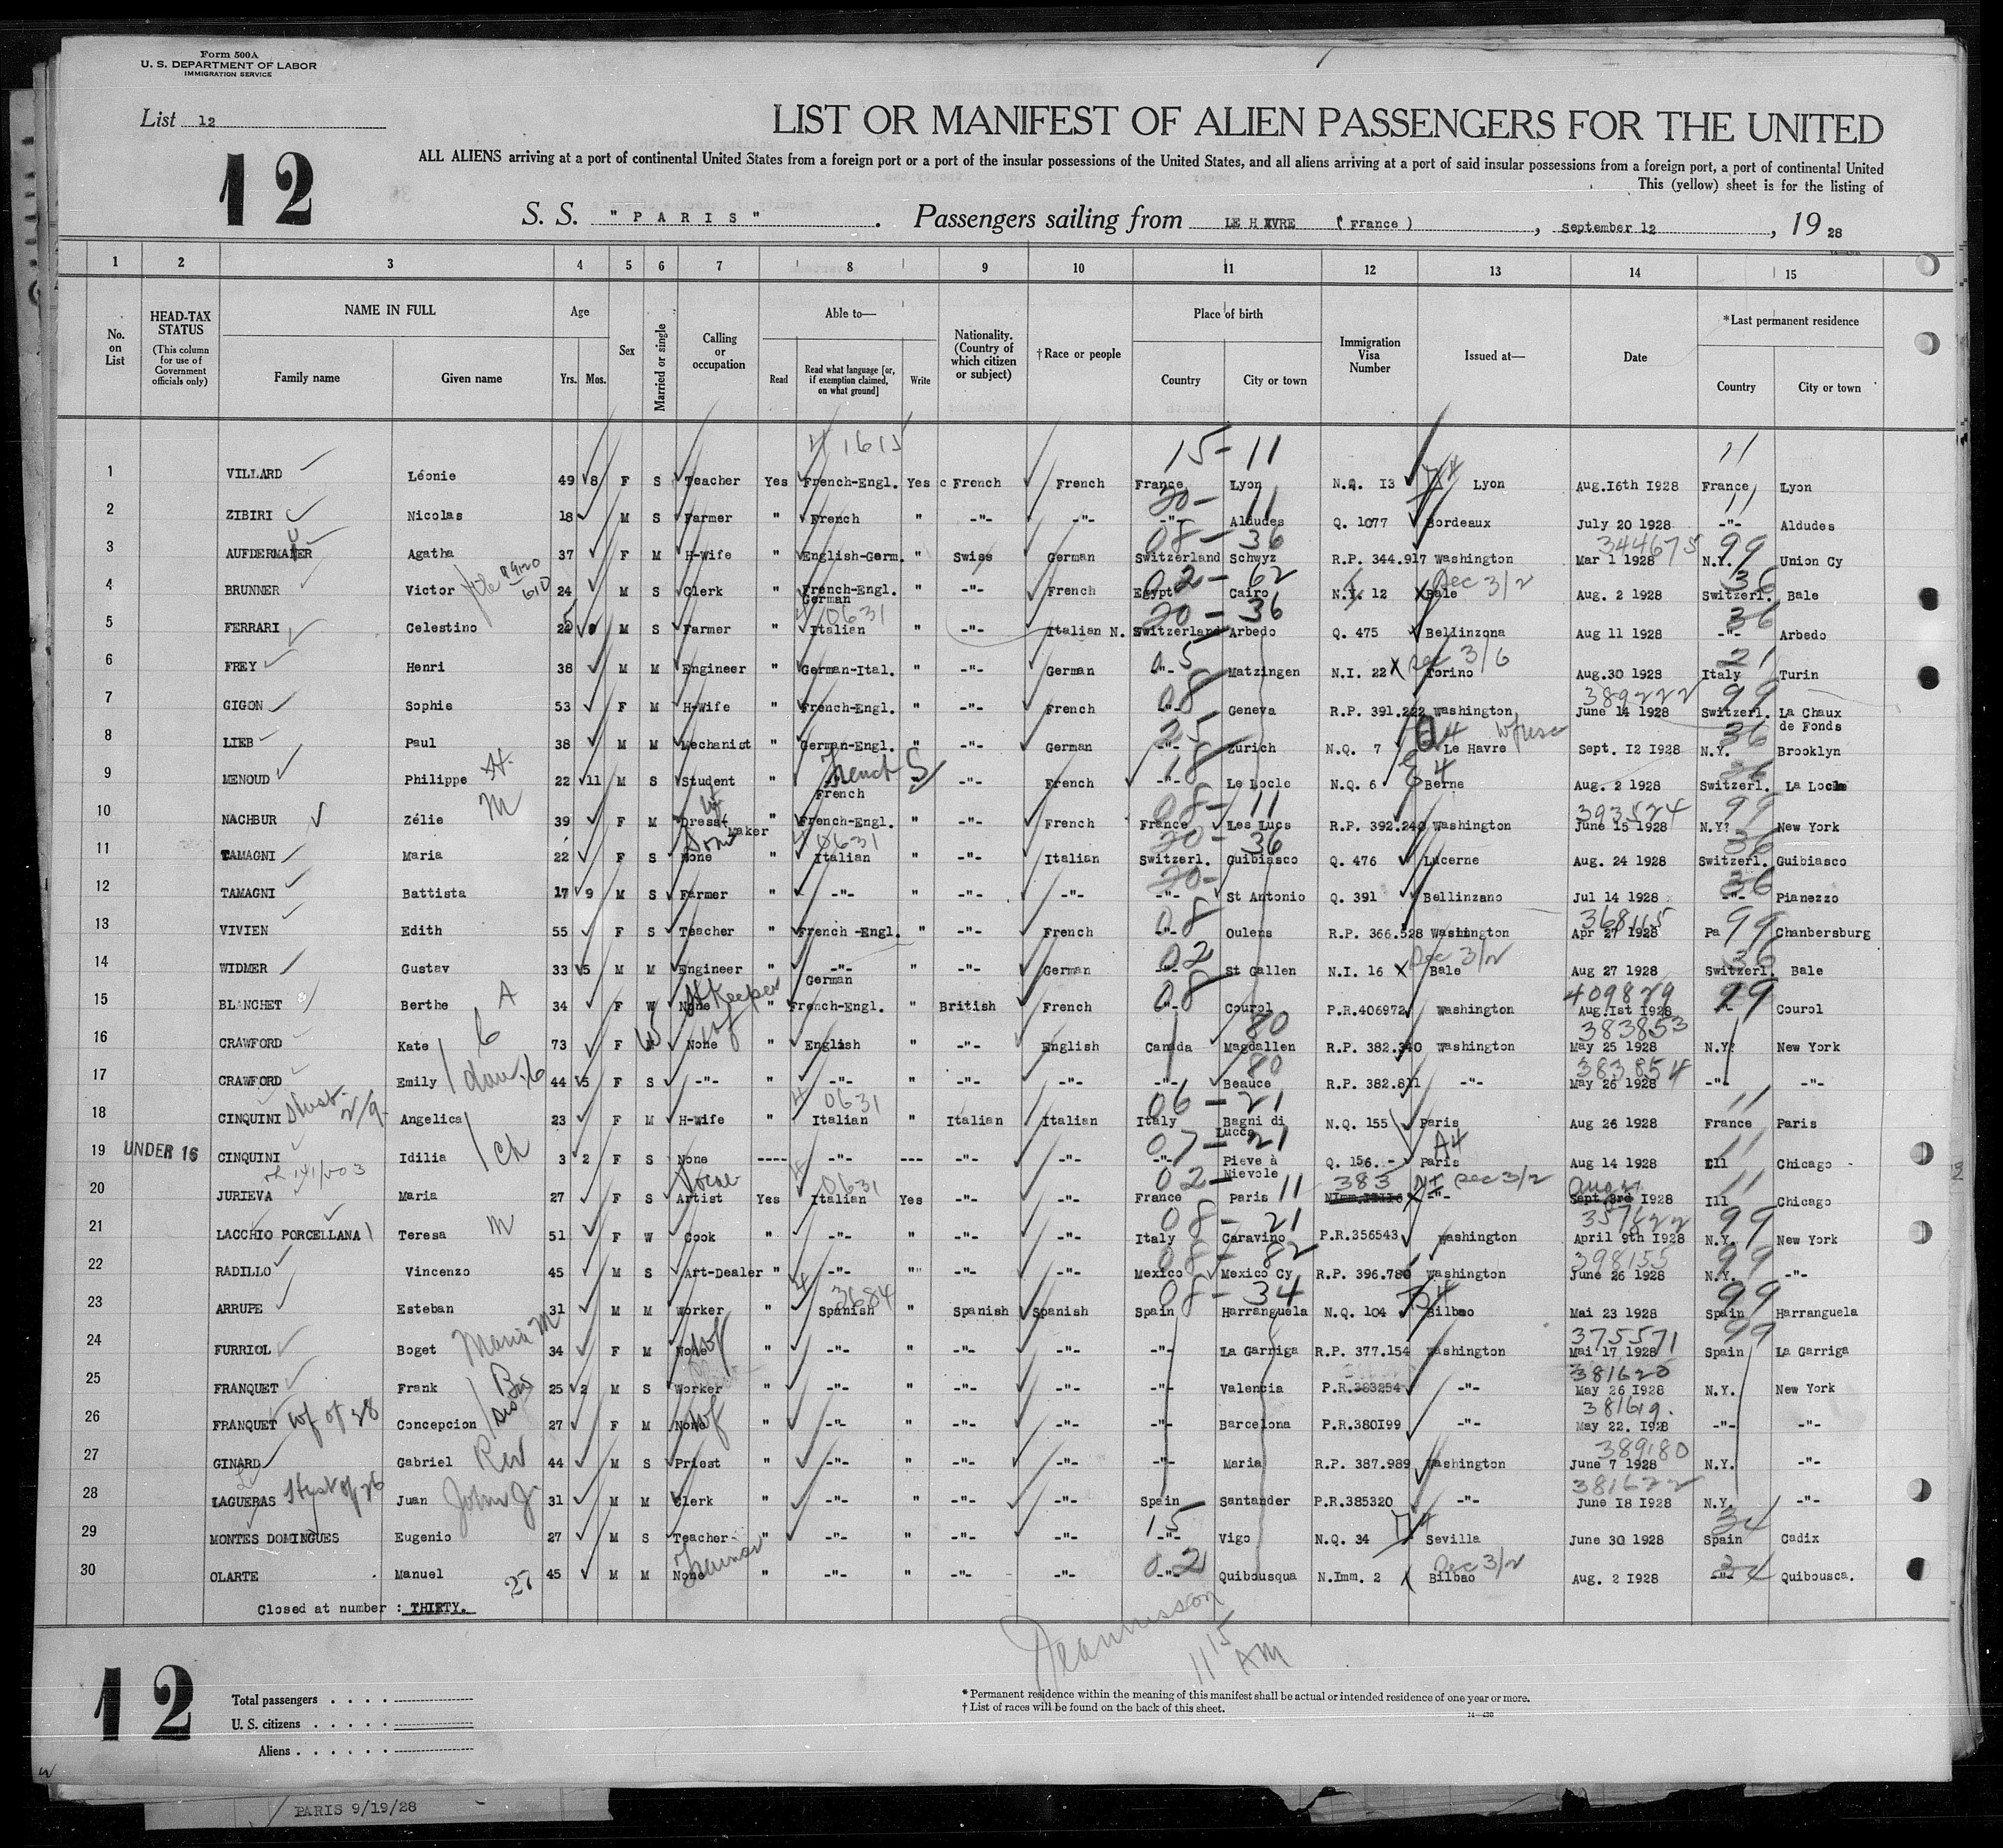 Form 500A
U. S. DEPARTMENT OF LABOR
IMMIGRATION SERVICE
List 12
LIST OR MANIFEST OF ALIEN PASSENGERS FOR THE UNITED
12
ALL ALIENS arriving at a port of continental United States from a foreign port or a port of the insular possessions of the United States, and all aliens arriving at a port of said insular possessions from a foreign port, a port of continental United
This (yellow) sheet is for the listing of
S. S. "PARIS". Passengers sailing from LE HAVRE (France), September 12, 1928
1 2 3 4 5 6 7 8 9 10 11 12 13 14 15
No. on List
HEAD-TAX STATUS (This column for use of Government officials only)
NAME IN FULL Family name Given name
Age Yrs. Mos.
Sex
Married or single
Calling or occupation
Able to— Read Read what language [or, if exemption claimed, on what ground] Write
Nationality. (Country of which citizen or subject)
†Race or people
Place of birth Country City or town
Immigration Visa Number
Issued at—
Date
*Last permanent residence Country City or town
41615 15-11 11
1 VILLARD Léonie 49 8 F S Teacher Yes French-Engl. Yes French French France Lyon N.Q. 13 Lyon Aug.16th 1928 France Lyon
20- 11 11
2 ZIBIRI Nicolas 18 M S Farmer " French " -"- -"- -"- Aldudes Q. 1077 Bordeaux July 20 1928 -"- Aldudes
08-36 344675 99
3 AUFDERMAUER Agatha 37 F M H-Wife " English-Germ. " Swiss German Switzerland Schwyz R.P. 344.917 Washington Mar 1 1928 N.Y. Union Cy
02-62 Sec 3/2 36
4 BRUNNER Victor 24 M S Clerk " French-Engl. German " -"- French Egypt Cairo N.I. 12 Bale Aug. 2 1928 Switzerl. Bale
40631 20-36 36
5 FERRARI Celestino M S Farmer " Italian " -"- Italian N. Switzerland Arbedo Q. 475 Bellinzona Aug 11 1928 -"- Arbedo
05 Sec 3/6 21
6 FREY Henri 38 M M Engineer " German-Ital. " -"- German -"- Matzingen N.I. 22 Torino Aug.30 1928 Italy Turin
08 389222 99
7 GIGON Sophie 53 F M H-Wife " French-Engl. " -"- French -"- Geneva R.P. 391.222 Washington June 14 1928 Switzerl. La Chaux de Fonds
25 36
8 LIEB Paul 38 M M Mechanist " German-Engl. " -"- German -"- Zurich N.Q. 7 Le Havre Sept. 12 1928 N.Y. Brooklyn
French 18 36
9 MENOUD Philippe 22 11 M S Student " French " -"- French -"- Le Locle N.Q. 6 Berne Aug. 2 1928 Switzerl. La Locle
M 08-11 393524 99
10 NACHBUR Zélie 39 F M Dress-maker " French-Engl. " -"- French France Les Lucs R.P. 392.240 Washington June 15 1928 N.Y? New York
40631 20-36 36
11 TAMAGNI Maria 22 F S None " Italian " -"- Italian Switzerl. Guibiasco Q. 476 Lucerne Aug. 24 1928 Switzerl. Guibiasco
20- 36
12 TAMAGNI Battista 17 9 M S Farmer " -"- " -"- -"- -"- St Antonio Q. 391 Bellinzano Jul 14 1928 -"- Pianezzo
08 368115 99
13 VIVIEN Edith 55 F S Teacher " French -Engl. " -"- French -"- Oulens R.P. 366.528 Washington Apr 27 1928 Pa Chanbersburg
02 Sec 3/2 36
14 WIDMER Gustav 33 5 M M Engineer " -"- German " -"- German -"- St Gallen N.I. 16 Bale Aug 27 1928 Switzerl. Bale
A Hkeeper 08 409829 99
15 BLANCHET Berthe 34 F W None " French-Engl. " British French -"- Courol P.R.406972 Washington Aug.1st 1928 -"- Courol
80 383853
16 CRAWFORD Kate 73 F W None " English " -"- English Canada Magdallen R.P. 382.340 Washington May 25 1928 N.Y? New York
80 383854
17 CRAWFORD Emily 44 5 F S -"- " -"- " -"- -"- -"- Beauce R.P. 382.811 -"- May 26 1928 -"- -"-
40631 06-21 11
18 CINQUINI Angelica 23 F M H-Wife " Italian " Italian Italian Italy Bagni di Lucca N.Q. 155 Paris Aug 26 1928 France Paris
07-21
19 UNDER 16 CINQUINI Idilia ch 3 2 F S None ---- -"- --- -"- -"- -"- Pieve à Nievole Q. 156. Paris Aug 14 1928 Ill Chicago
0631 02- 11 383 Sec 3/2 Aug 11
20 JURIEVA Maria 27 F S Artist Yes Italian Yes -"- -"- France Paris -"- Sept. 3rd 1928 Ill Chicago
M 08-21 357822 99
21 LACCHIO PORCELLANA Teresa 51 F W Cook " -"- " -"- -"- Italy Caravino P.R.356543 Washington April 9th 1928 N.Y. New York
08-82 398155 99
22 RADILLO Vincenzo 45 M S Art-Dealer " -"- " -"- -"- Mexico Mexico Cy R.P. 396.780 Washington June 26 1928 N.Y. -"-
3684 08-34 99
23 ARRUPE Esteban 31 M M Worker " Spanish " Spanish Spanish Spain Harranguela N.Q. 104 Bilbao Mai 23 1928 Spain Harranguela
Maria M wf 375571 99
24 FURRIOL Boget 34 F M None " -"- " -"- -"- -"- La Garriga R.P. 377.154 Washington Mai 17 1928 Spain La Garriga
Bro 381620
25 FRANQUET Frank 25 2 M S Worker " -"- " -"- -"- -"- Valencia P.R.383254 -"- May 26 1928 N.Y. New York
sis 381619.
26 FRANQUET wf of 28 Concepcion 27 F M None wf " -"- " -"- -"- -"- Barcelona P.R.380199 -"- May 22. 1928 -"- -"-
389180
27 GINARD Gabriel Rev 44 M S Priest " -"- " -"- -"- -"- Maria R.P. 387.989 Washington June 7 1928 N.Y. -"-
381622
28 LAGUERAS Hust of 26 Juan John J. 31 M M Clerk " -"- " -"- -"- Spain Santander P.R.385320 -"- June 18 1928 N.Y. -"-
15 34
29 MONTES DOMINGUES Eugenio 27 M S Teacher " -"- " -"- -"- -"- Vigo N.Q. 34 Sevilla June 30 1928 Spain Cadix
02 Sec 3/2 34
30 OLARTE Manuel 27 45 M M None " -"- " -"- -"- -"- Quibousqua N.Imm. 2 Bilbao Aug. 2 1928 -"- Quibousca.
Closed at number : THIRTY.
11 15 AM
12
Total passengers
U. S. citizens
Aliens
*Permanent residence within the meaning of this manifest shall be actual or intended residence of one year or more.
†List of races will be found on the back of this sheet.
PARIS 9/19/28